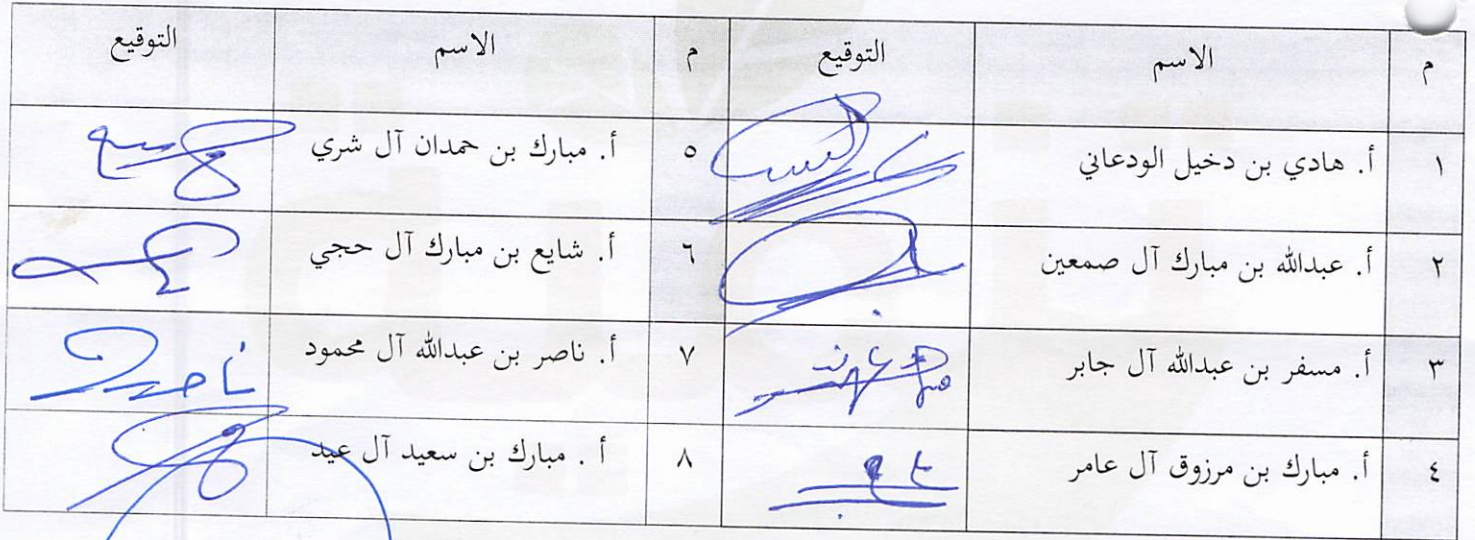 م الاسم التوقيع م الاسم التوقيع
١ أ. هادي بن دخيل الودعاني ٥ أ. مبارك بن حمدان آل شري
٢ أ. عبدالله بن مبارك آل صمعين ٦ أ. شايع بن مبارك آل حجي
٣ أ. مسفر بن عبدالله آل جابر ٧ أ. ناصر بن عبدالله آل محمود ناصر
٤ أ. مبارك بن مرزوق آل عامر ٨ أ . مبارك بن سعيد آل عيد